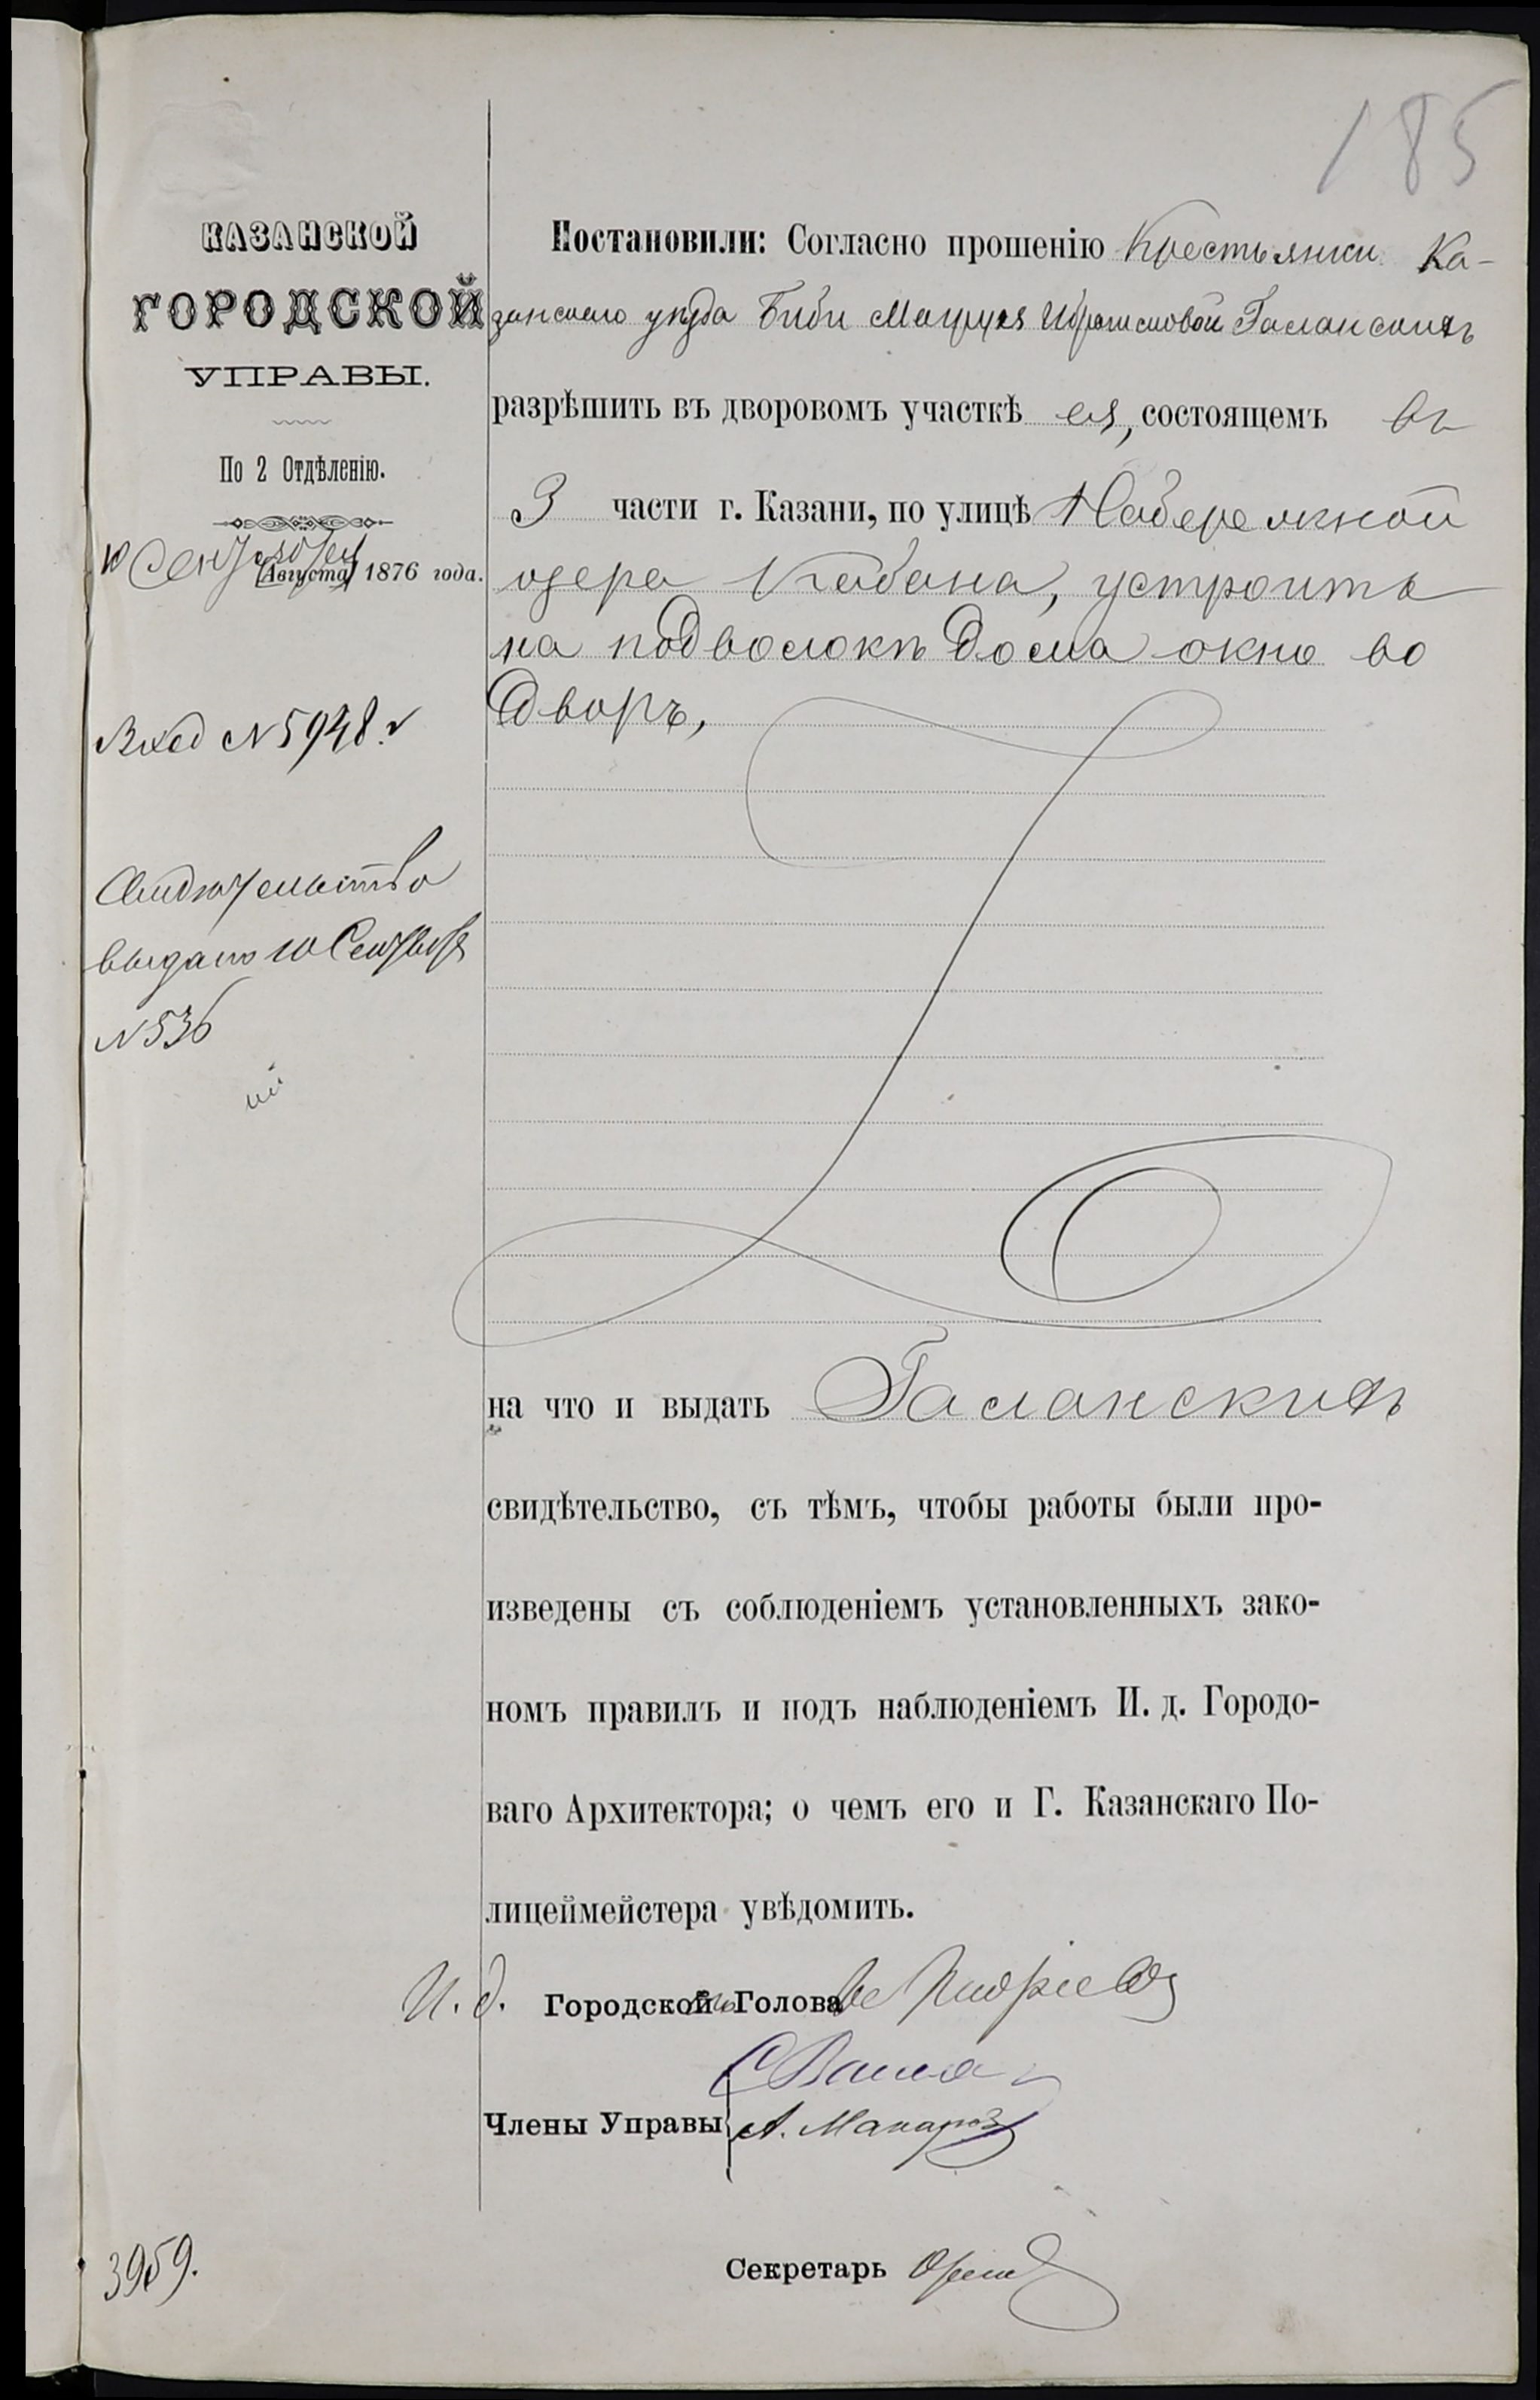 185
КАЗАНСКОЙ
ГОРОДСКОЙ
УПРАВЫ.
По 2 Отдѣленію.
10 Сентября [Августа] 1876 года.
Вход №5948.
Свидѣтельство
выдано 10 Сентября
№536
Постановили: Согласно прошенію Крестьянки Ка-
занскаго уѣзда Биби Ибрагимовой Галанскихъ
разрѣшить въ дворовомъ участкѣ ея, состоящемъ въ
3 части г. Казани, по улицѣ Набережной
озера Кабана, устроить
на подволокѣ дома окно во
дворъ,
на что и выдать Галанскихъ
свидѣтельство, съ тѣмъ, чтобы работы были про-
изведены съ соблюденіемъ установленныхъ зако-
номъ правилъ и подъ наблюденіемъ И. д. Городо-
ваго Архитектора; о чемъ его и Г. Казанскаго По-
лицеймейстера увѣдомить.
И. д. Городской Голова
Члены Управы
Секретарь
3959.